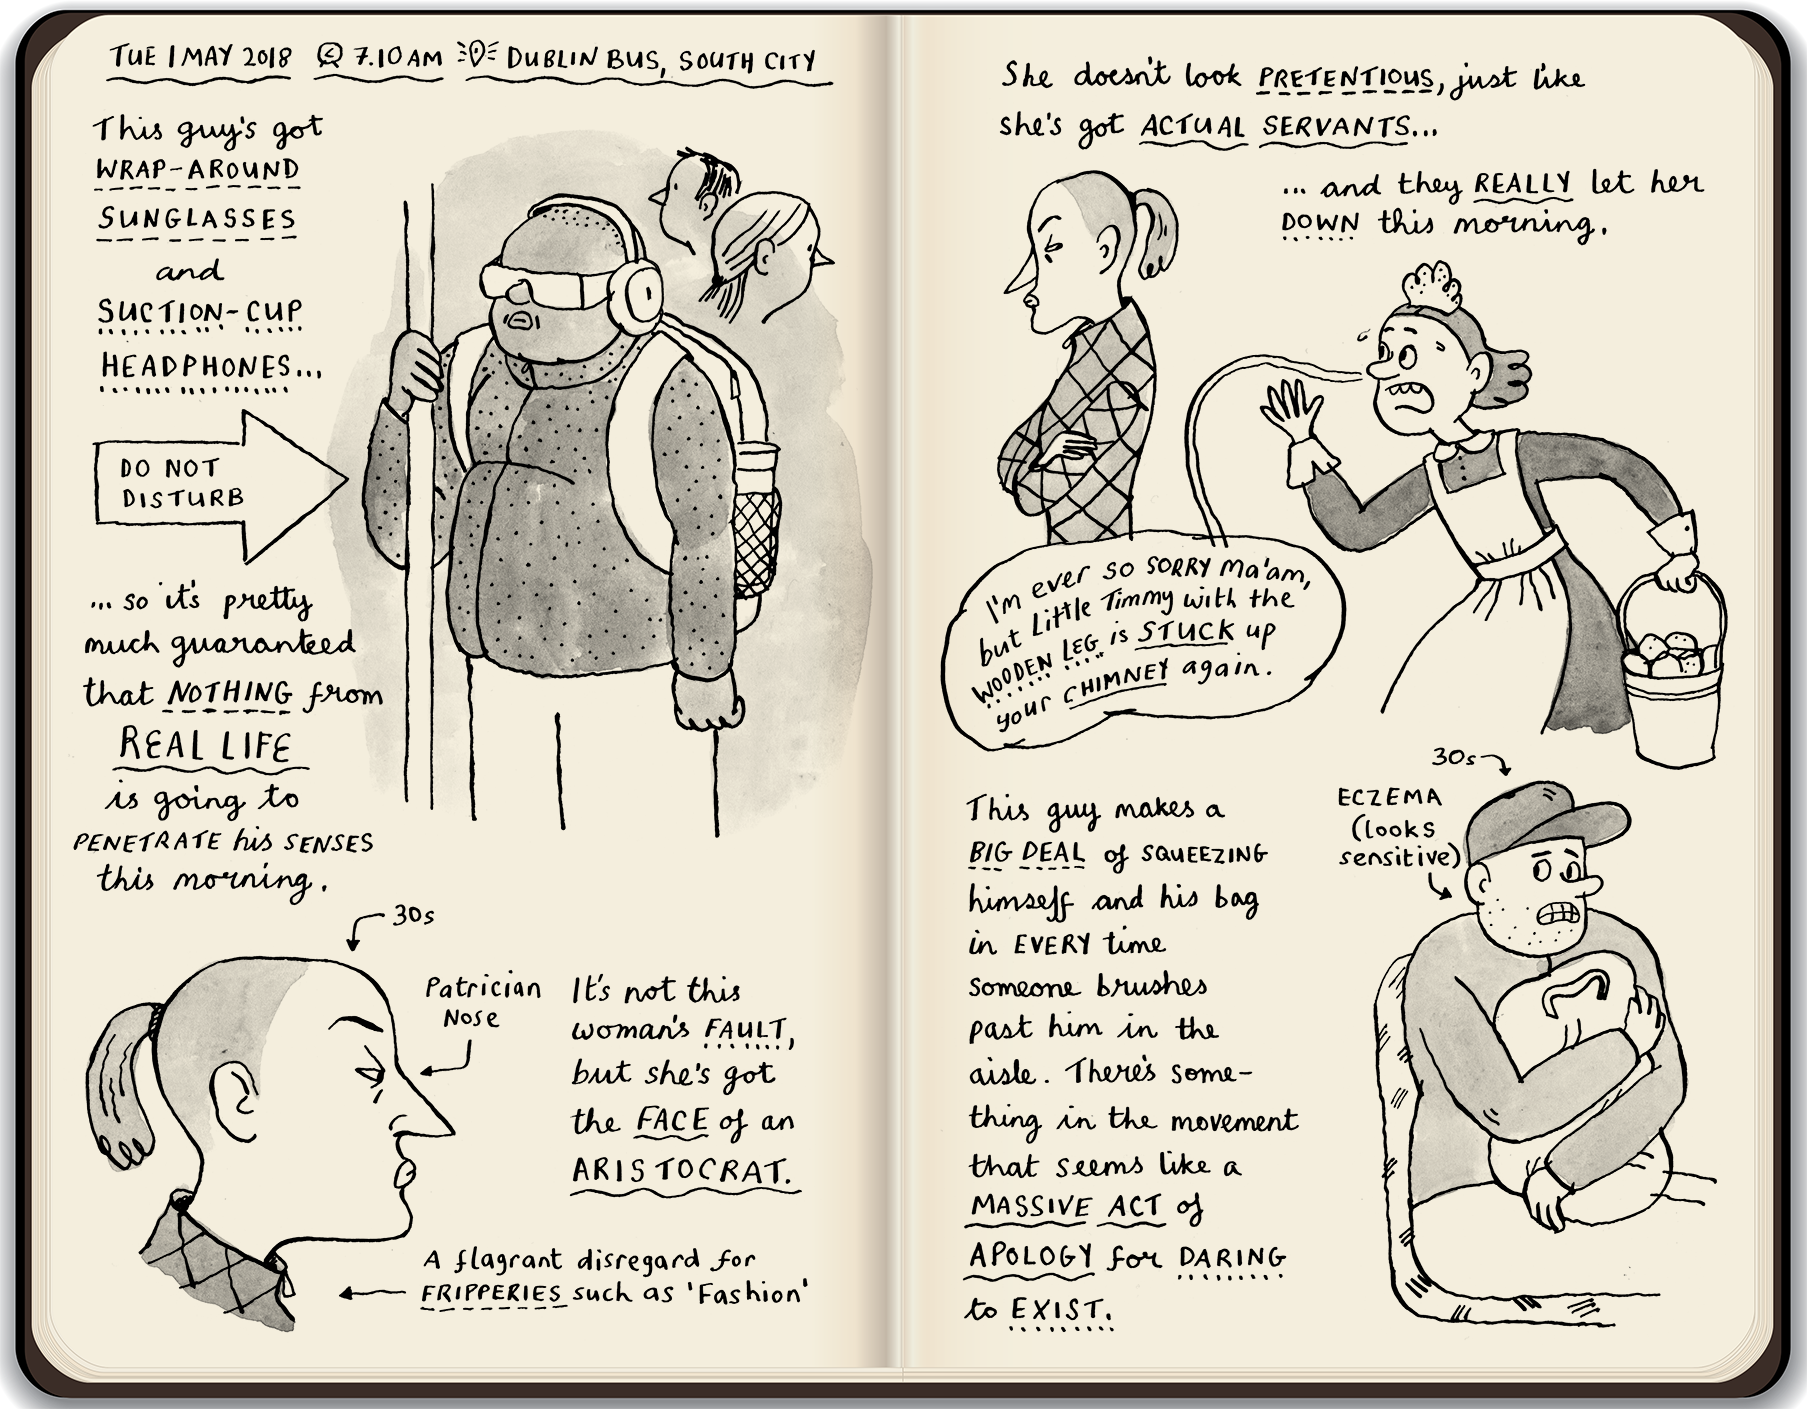 TUE 1 MAY 2018 7.10 AM DUBLIN BUS, SOUTH CITY
This guy's got
WRAP-AROUND
SUNGLASSES
and
SUCTION-CUP
HEADPHONES...
DO NOT
DISTURB
... so it's pretty
much guaranteed
that NOTHING from
REAL LIFE
is going to
PENETRATE his SENSES
this morning.
30s
Patrician
Nose
It's not this
woman's FAULT,
but she's got
the FACE of an
ARISTOCRAT.
A flagrant disregard for
FRIPPERIES such as 'Fashion'
She doesn't look PRETENTIOUS, just like
she's got ACTUAL SERVANTS...
... and they REALLY let her
DOWN this morning.
I'm ever so SORRY Ma'am,
but Little Timmy with the
WOODEN LEG is STUCK up
your CHIMNEY again.
This guy makes a
BIG DEAL of SQUEEZING
himself and his bag
in EVERY time
someone brushes
past him in the
aisle. There's some-
thing in the movement
that seems like a
MASSIVE ACT of
APOLOGY for DARING
to EXIST.
30s
ECZEMA
(looks
sensitive)